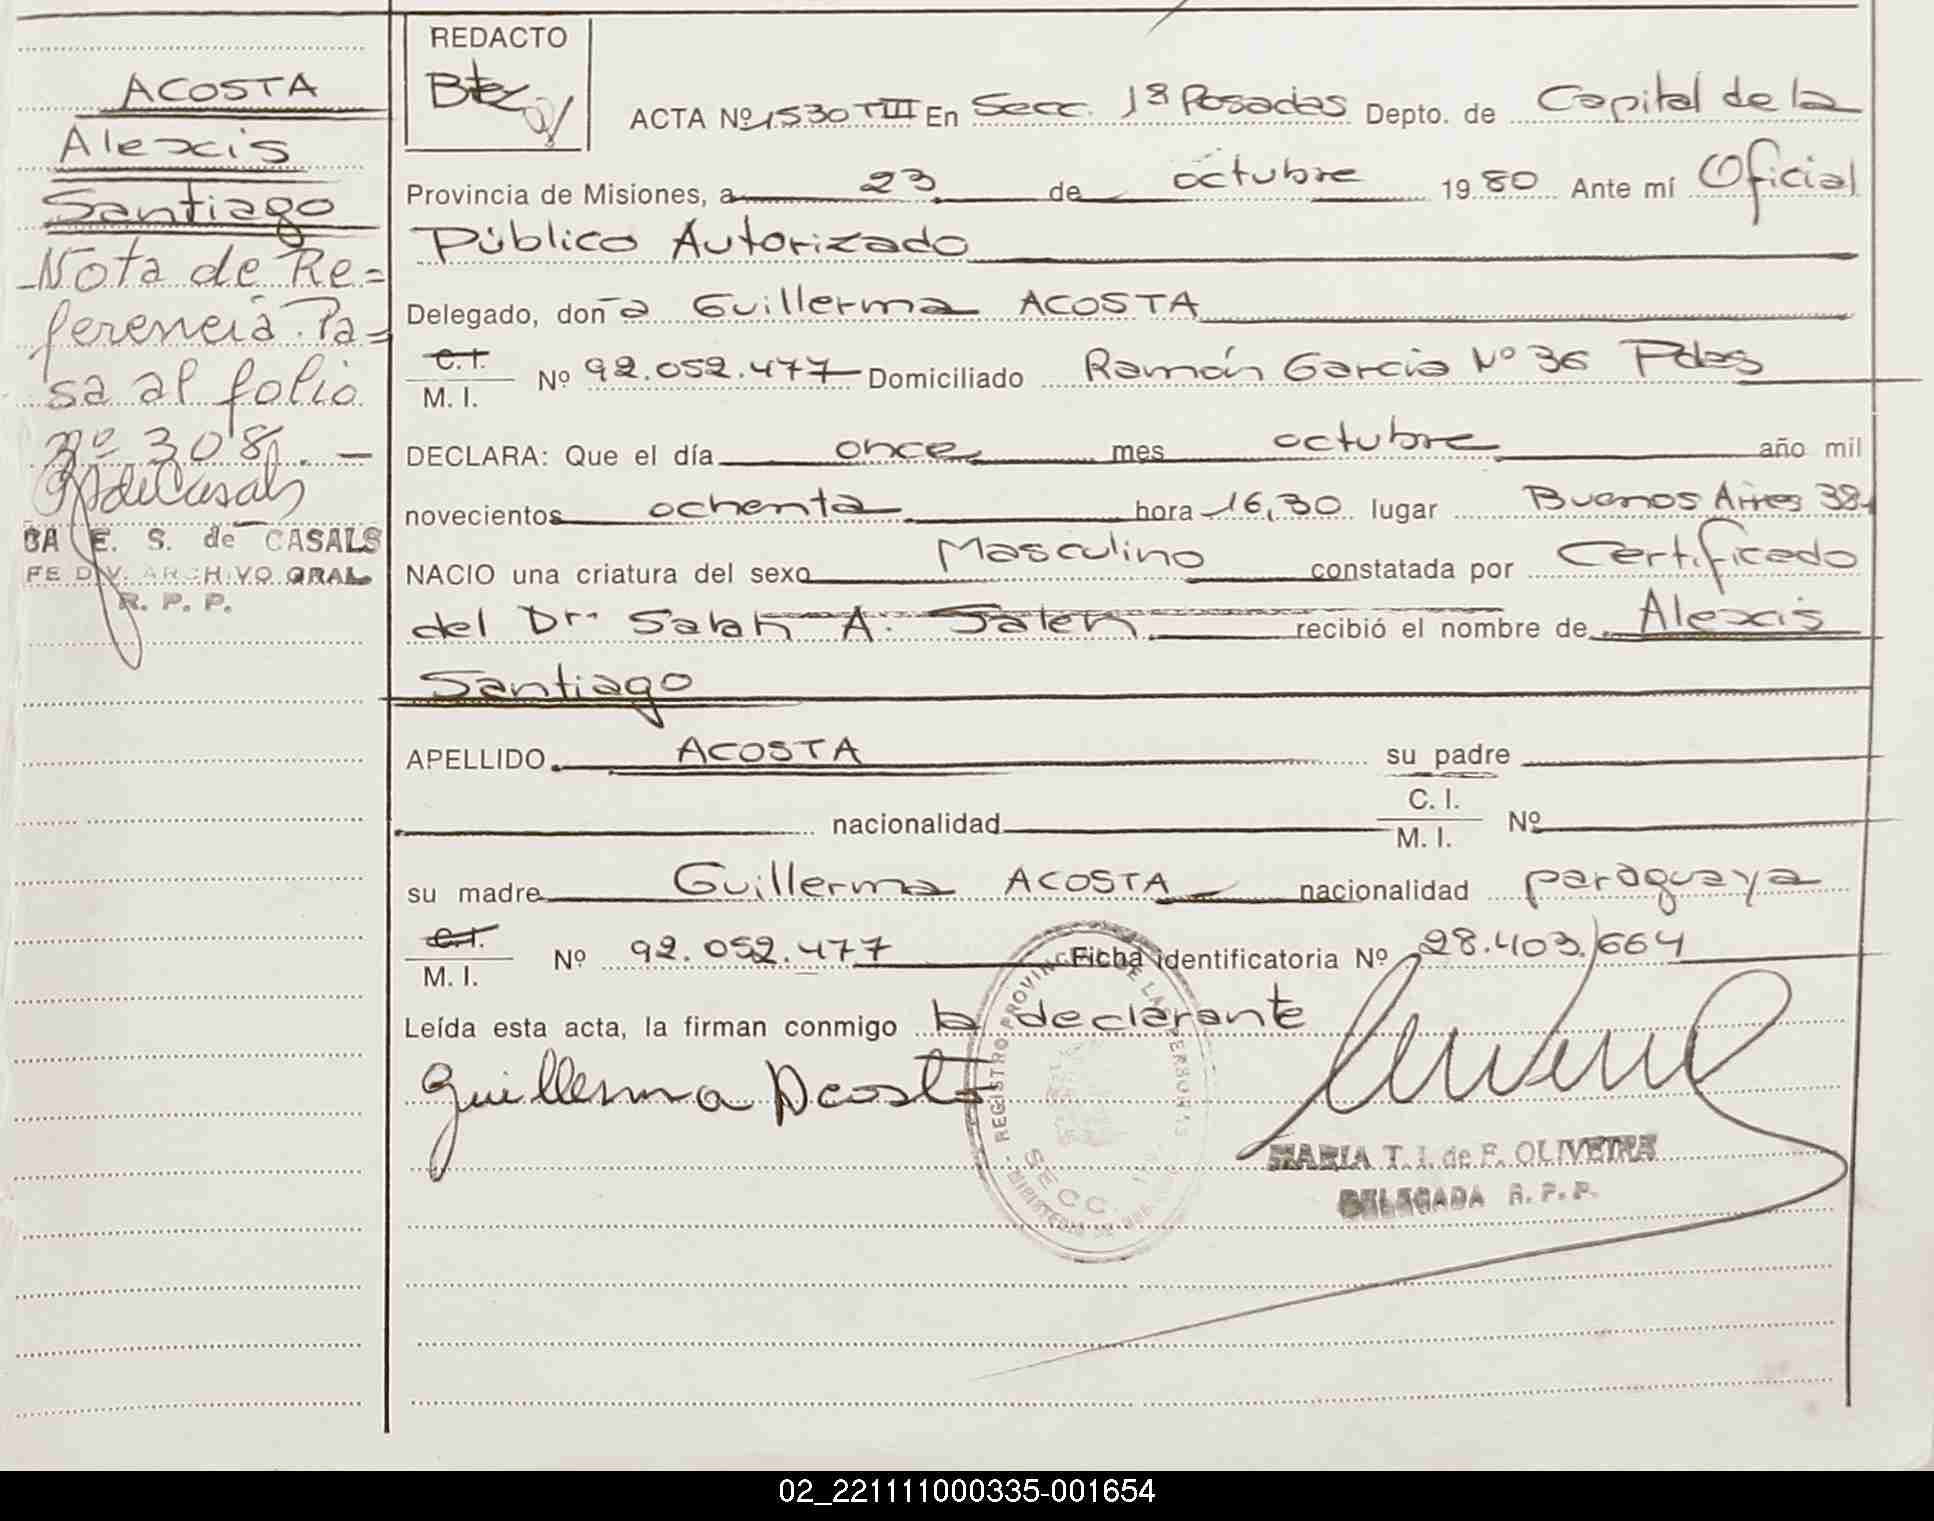 ACOSTA
Alexis
Santiago
Nota de Re=
ferencia. Pa=
sa al folio
nº 308. —
E. S. de CASALS
FE DIV. ARCHIVO GRAL
R. P. P.
REDACTO
ACTA Nº 1530 TIII En Secc. 1ª Posadas Depto. de Capital de la
Provincia de Misiones, a 23 de octubre 1980 Ante mí Oficial
Público Autorizado
Delegado, don a Guillerma ACOSTA
C.I.
M. I. Nº 92.052.477 Domiciliado Ramón Garcia Nº 36 Pdas
DECLARA: Que el día once mes octubre año mil
novecientos ochenta hora 16,30 lugar Buenos Aires 381
NACIO una criatura del sexo Masculino constatada por Certificado
del Dr. Salah A. Saleh recibió el nombre de Alexis
Santiago
APELLIDO ACOSTA su padre
nacionalidad C. I.
M. I. Nº
su madre Guillerma ACOSTA nacionalidad paraguaya
C.I.
M. I. Nº 92.052.477 Ficha identificatoria Nº 28.403.664
Leída esta acta, la firman conmigo la declarante
Guillerma Acosta
REGISTRO PROVINCIAL DE LAS PERSONAS
SECC.
MARIA T. I. de F. OLIVEIRA
DELEGADA R. P. P.
02_221111000335-001654